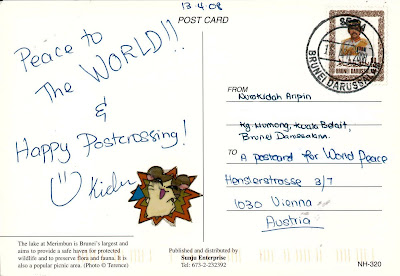 13-4-08
POST CARD
Peace to
The WORLD!!
&
Happy Postcrossing!
BRUNEI DARUSSALAM
FROM
Nurokidah Aripin
Kg Mumong, Kuala Belait,
Brunei Darussalam.
TO
A Postcard for World Peace
Henslerstrasse 3/7
1030 Vienna
Austria
The lake at Merimbun is Brunei's largest and
aims to provide a safe haven for protected
wildlife and to preserve flora and fauna. It is
also a popular picnic area. (Photo © Terence)
Published and distributed by
Sunju Enterprise
Tel: 673-2-232392
NH-320